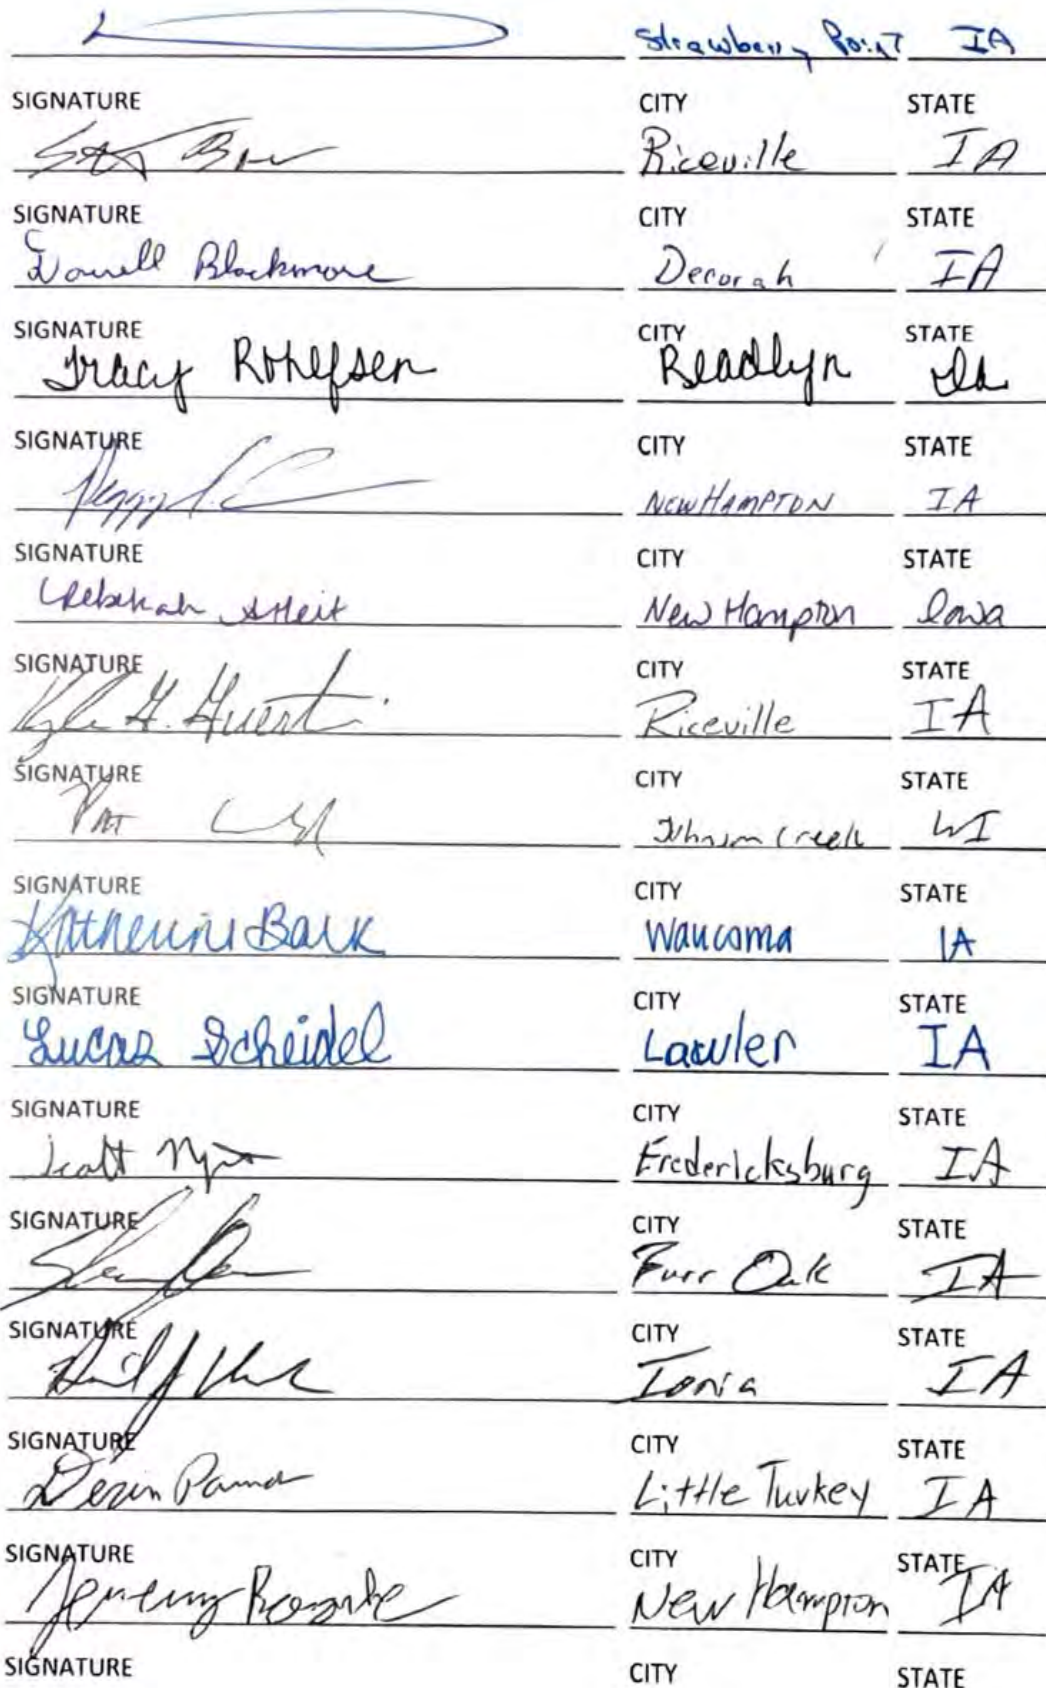 Strawberry Point IA
SIGNATURE CITY STATE
Riceville IA
SIGNATURE CITY STATE
Blackmore Decorah IA
SIGNATURE CITY STATE
Tracy Rohlfsen Readlyn Ia
SIGNATURE CITY STATE
Peggy NEW HAMPTON IA
SIGNATURE CITY STATE
Rebekah New Hampton Iowa
SIGNATURE CITY STATE
Kyle G. Riceville IA
SIGNATURE CITY STATE
Pat Johnson Creek WI
SIGNATURE CITY STATE
Katherine Bark Waucoma IA
SIGNATURE CITY STATE
Lucas Scheidel Lawler IA
SIGNATURE CITY STATE
Scott Fredericksburg IA
SIGNATURE CITY STATE
Furr Oak IA
SIGNATURE CITY STATE
Ionia IA
SIGNATURE CITY STATE
Little Turkey IA
SIGNATURE CITY STATE
Jeremy New Hampton IA
SIGNATURE CITY STATE